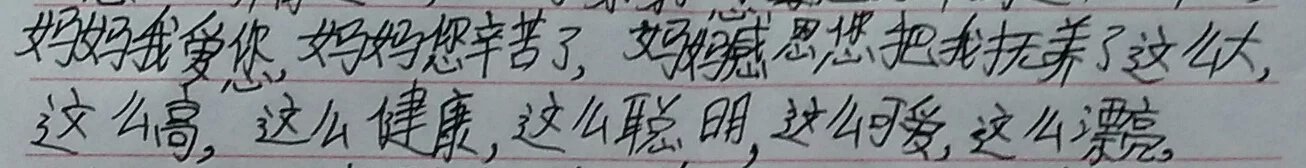 妈妈我爱您,妈妈您辛苦了,妈妈感恩您把我抚养了这么大,
这么高,这么健康,这么聪明,这么可爱,这么漂亮。